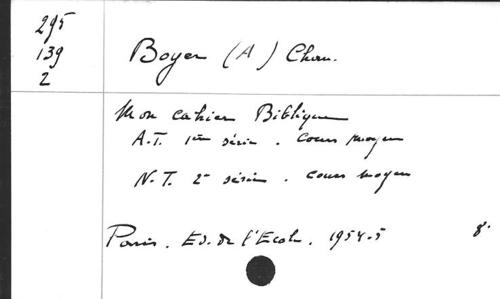 295
139
2
Boyer (A) Chan.
Mon cahier Biblique
A.T. 1ère série . Cours moyen
N.T. 2e série . Cours moyen
Paris . Ed. de l'Ecole . 1954-5 8°